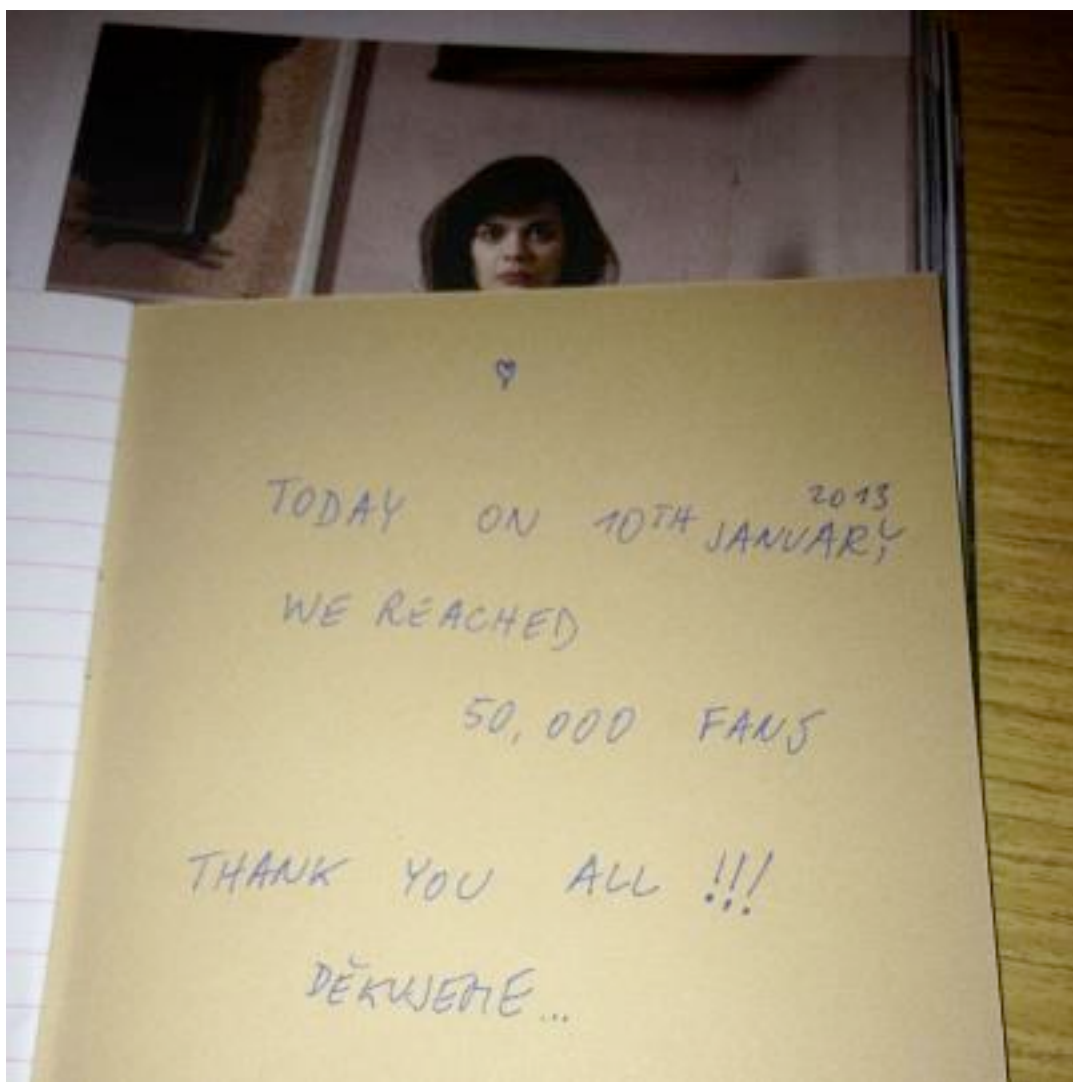 TODAY ON 10TH JANUARY 2013
WE REACHED
50,000 FANS
THANK YOU ALL !!!
DĚKUJEME...